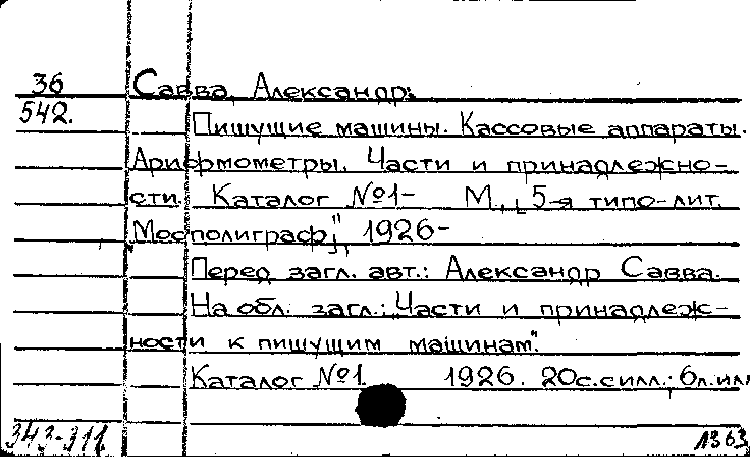 36
542.
Савва, Александр.
Пишущие машины. Кассовые аппараты.
Арифмометры. Части и принадлежно-
сти. Каталог №1- М., 5-я типо-лит.
"Мосполиграф", 1926-
Перед загл. авт.: Александр Савва.
На обл. загл.: "Части и принадлеж-
ности к пишущим машинам".
Каталог №1. 1926. 20с.с илл.; 6л.ил
343-311
1363